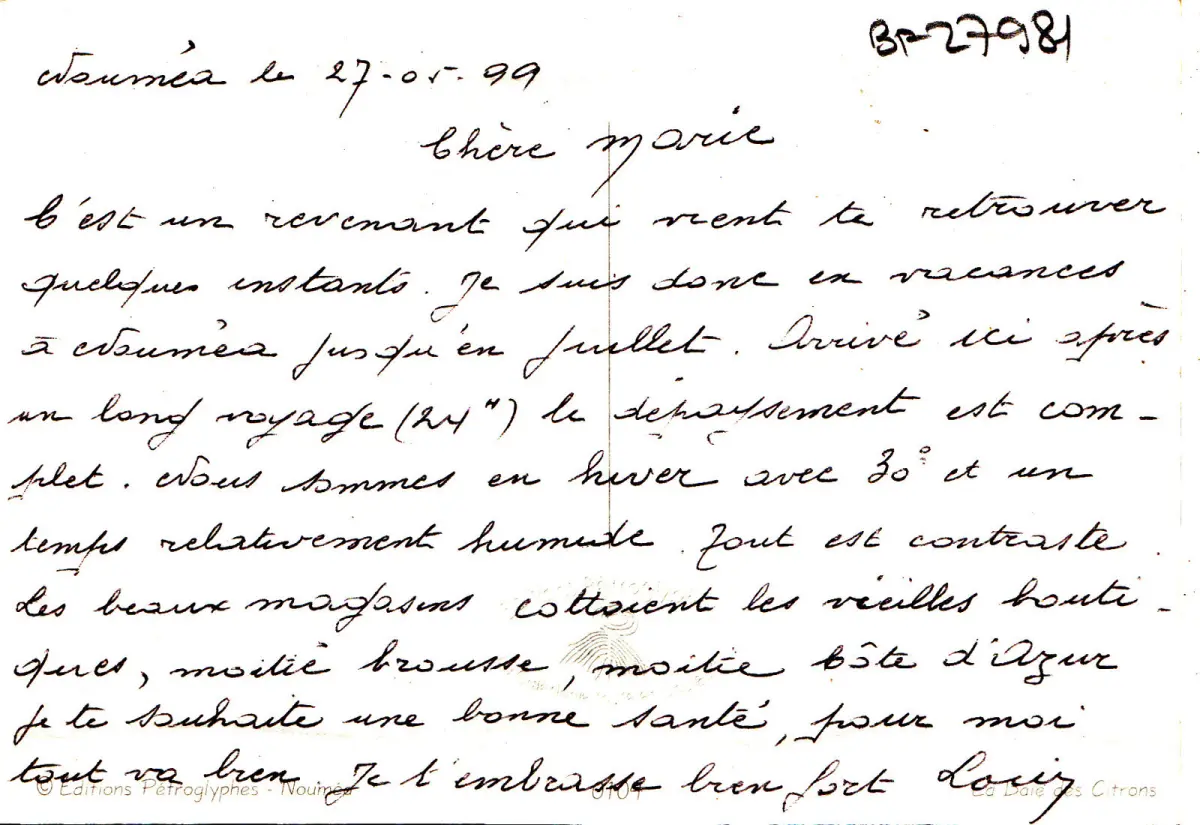 BP-27981
Nouméa le 27-05-99
Chère Marie
C'est un revenant qui vient te retrouver
quelques instants. Je suis donc en vacances
à Nouméa jusqu'en Juillet. Arrivé ici après
un long voyage (24H) le dépaysement est com-
plet. Nous sommes en hiver avec 30° et un
temps relativement humide. Tout est contraste.
Les beaux magasins cottoient les vieilles bouti-
ques, moitié brousse, moitié Côte d'Azur
Je te souhaite une bonne santé, pour moi
tout va bien. Je t'embrasse bien fort Louis
© Editions Pétroglyphes - Nouméa 0104 La Baie des Citrons